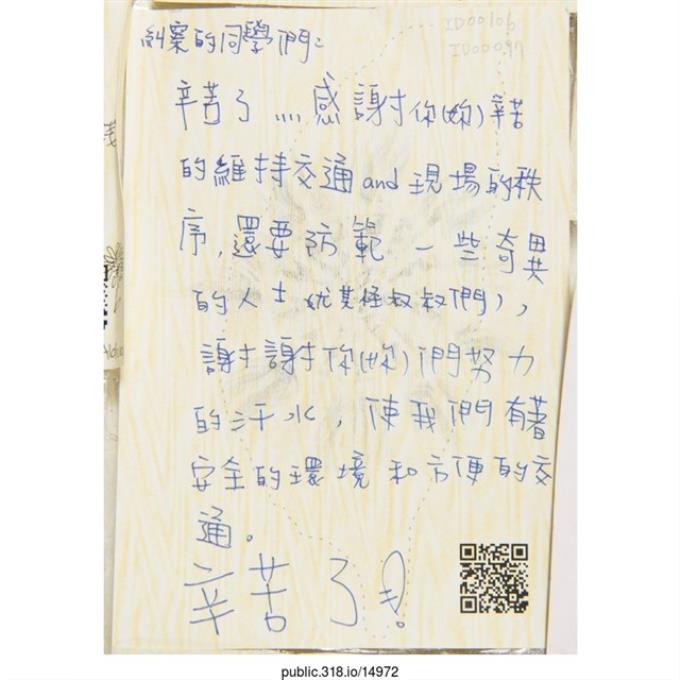 糾察的同學們：
ID00106
ID00097
辛苦了灬感謝你(妳)辛苦
的維持交通and現場的秩
序,還要防範一些奇異
的人士(尤其怪叔叔們),
謝謝你(妳)們努力
的汗水,使我們有著
安全的環境和方便的交
通。
辛苦了!
public.318.io/14972